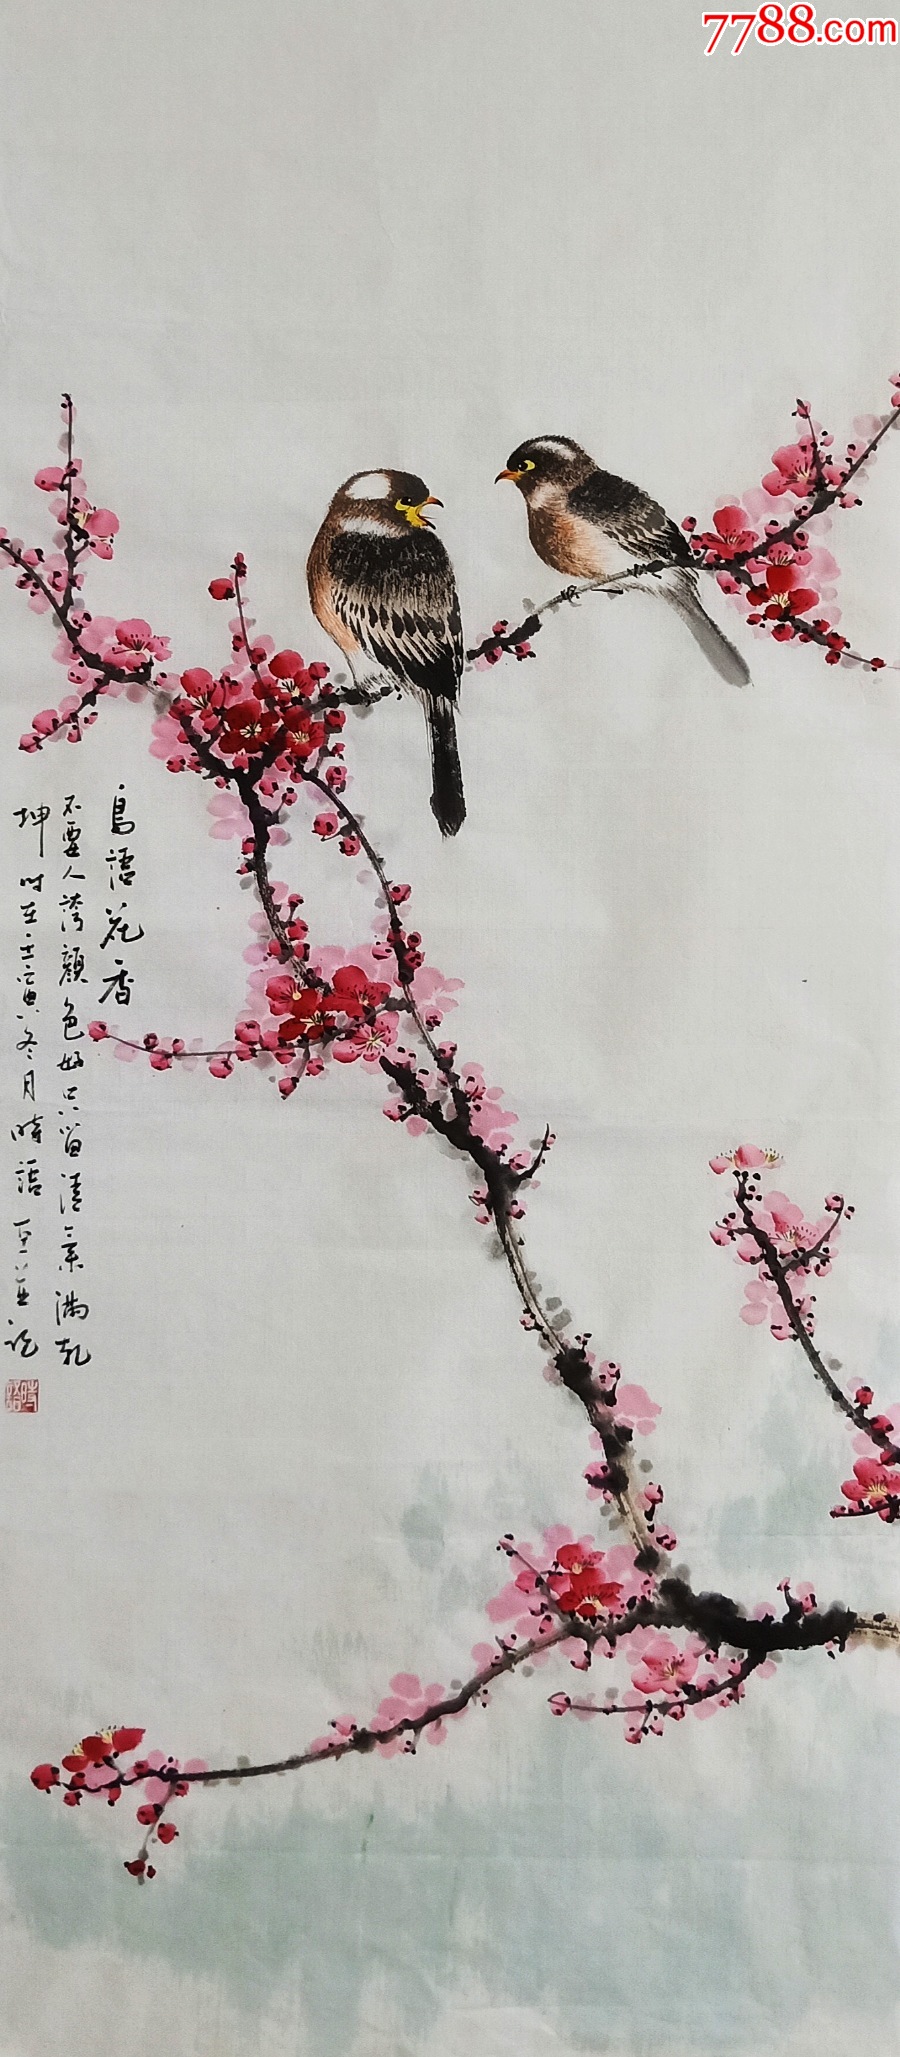 7788.com
鳥語花香
不要人誇顔色好只留清氣滿乾
坤时在壬寅冬月時語
時語